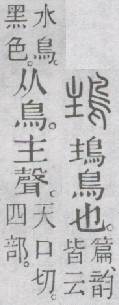 䳠鳥也。
篇、韵
皆云
水鳥。
黑色。
从鳥。主聲。
天口切。
四部。